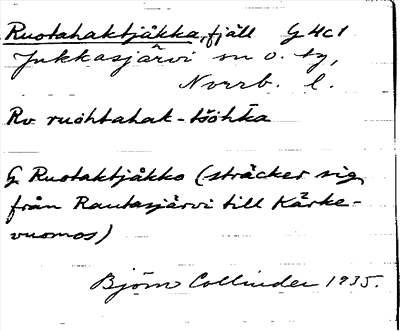 Ruotahaktjåkka, fjäll G 4c1
Jukkasjärvi sn o. tg,
Norrb. l.
Rv ruohtahak-tšohka
G Ruotaktjåkko (sträcker sig
från Rautasjärvi till Kårke-
vuomos)
Björn Collinder 1935.